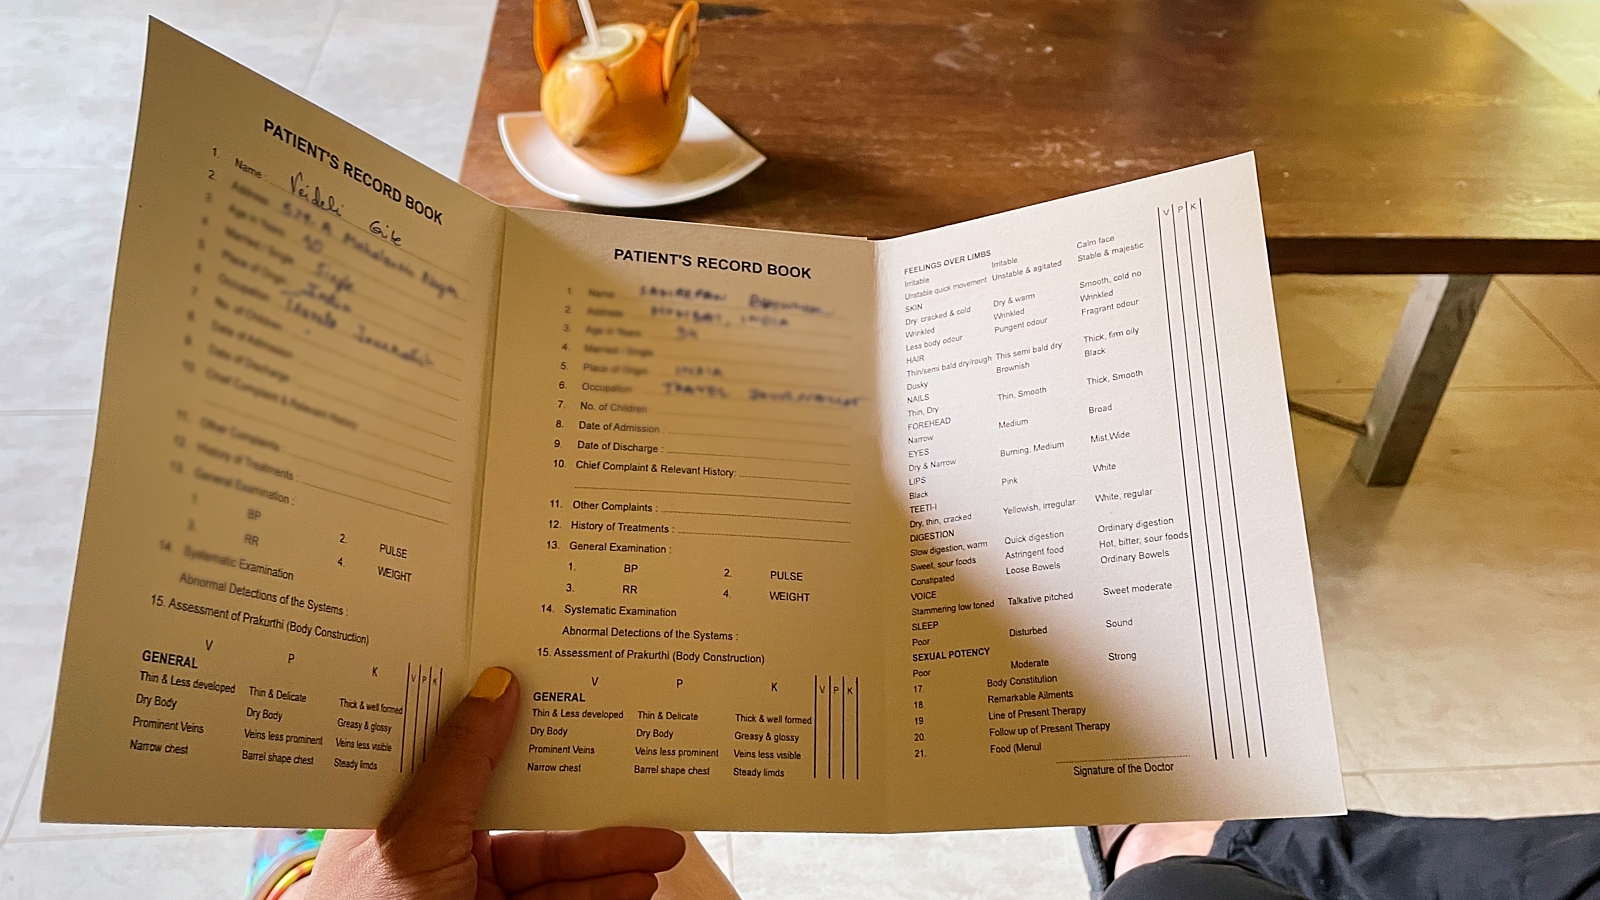 PATIENT'S RECORD BOOK
1. Name: Veideli Gite
2. Address
3. Age in Years
4. Married / Single Single
5. Place of Origin India
6. Occupation
7. No. of Children
8. Date of Admission
9. Date of Discharge
10. Chief Complaint & Relevant History
11. Other Complaints :
12. History of Treatments :
13. General Examination :
1. BP 2. PULSE
3. RR 4. WEIGHT
14. Systematic Examination
Abnormal Detections of the Systems :
15. Assessment of Prakurthi (Body Construction)
V P K
GENERAL V P K
Thin & Less developed Thin & Delicate Thick & well formed
Dry Body Dry Body Greasy & glossy
Prominent Veins Veins less prominent Veins less visible
Narrow chest Barrel shape chest Steady limds
PATIENT'S RECORD BOOK
1. Name
2. Address INDIA
3. Age in Years
4. Married / Single
5. Place of Origin INDIA
6. Occupation TRAVEL JOURNALIST
7. No. of Children
8. Date of Admission :
9. Date of Discharge :
10. Chief Complaint & Relevant History:
11. Other Complaints :
12. History of Treatments :
13. General Examination :
1. BP 2. PULSE
3. RR 4. WEIGHT
14. Systematic Examination
Abnormal Detections of the Systems :
15. Assessment of Prakurthi (Body Construction)
V P K
GENERAL V P K
Thin & Less developed Thin & Delicate Thick & well formed
Dry Body Dry Body Greasy & glossy
Prominent Veins Veins less prominent Veins less visible
Narrow chest Barrel shape chest Steady limds
V P K
FEELINGS OVER LIMBS
Irritable Irritable Calm face
Unstable quick movement Unstable & agitated Stable & majestic
SKIN
Dry, cracked & cold Dry & warm Smooth, cold no
Wrinkled Wrinkled Wrinkled
Less body odour Pungent odour Fragrant odour
HAIR
Thin/semi bald dry/rough This semi bald dry Thick, firm oily
Dusky Brownish Black
NAILS
Thin, Dry Thin, Smooth Thick, Smooth
FOREHEAD
Narrow Medium Broad
EYES
Dry & Narrow Burning, Medium Mist,Wide
LIPS
Black Pink White
TEETI-I
Dry, thin, cracked Yellowish, irregular White, regular
DIGESTION
Slow digestion, warm Quick digestion Ordinary digestion
Sweet, sour foods Astringent food Hot, bitter, sour foods
Constipated Loose Bowels Ordinary Bowels
VOICE
Stammering low toned Talkative pitched Sweet moderate
SLEEP
Poor Disturbed Sound
SEXUAL POTENCY
Poor Moderate Strong
17. Body Constitution
18. Remarkable Ailments
19. Line of Present Therapy
20. Follow up of Present Therapy
21. Food (Menul
Signature of the Doctor